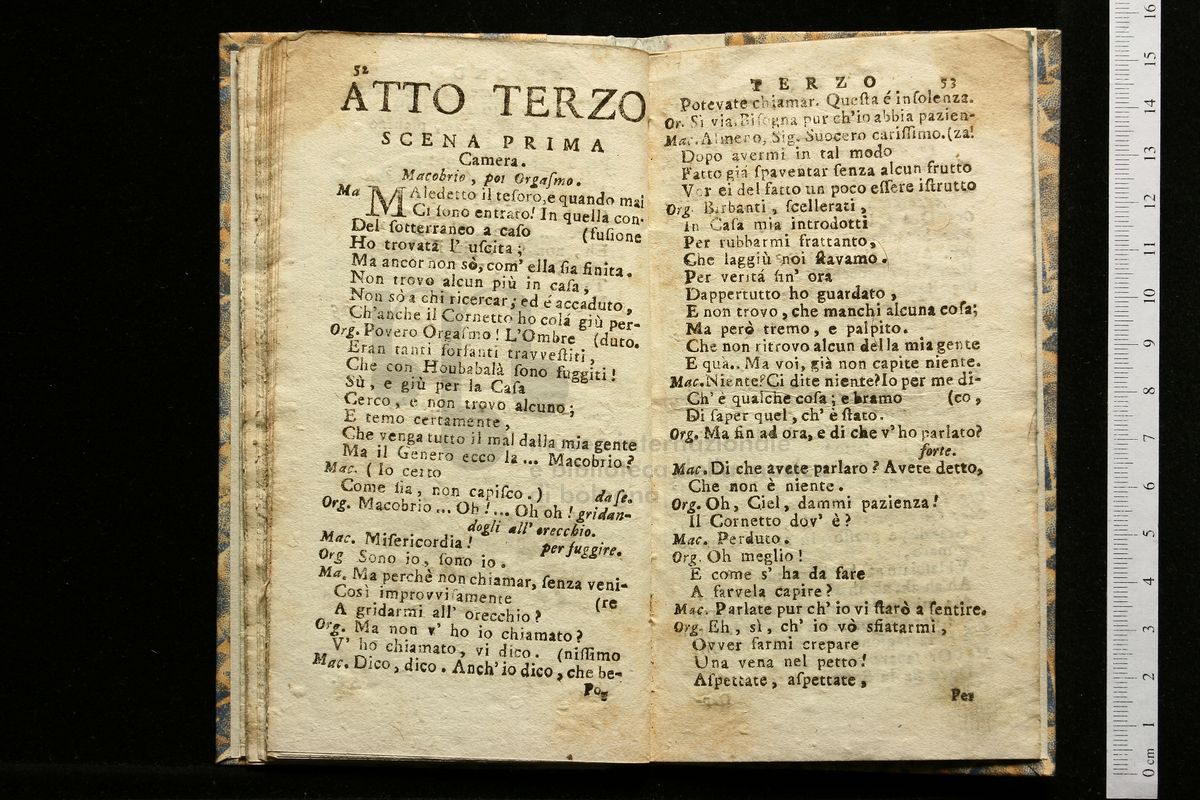 52
ATTO TERZO
SCENA PRIMA
Camera.
Macobrio, poi Orgasmo.
Ma MAledetto il tesoro,e quando mai
Ci sono entrato! In quella con-
Del sotterraneo a caso (fusione
Ho trovata l' uscita;
Ma ancor non sò, com' ella sia finita.
Non trovo alcun più in casa,
Non sò a chi ricercar; ed é accaduto,
Ch'anche il Cornetto ho colá giù per-
Org. Povero Orgasmo! L'Ombre (duto.
Eran tanti forfanti travvestiti,
Che con Houbabalà sono fuggiti!
Sù, e giù per la Casa
Cerco, e non trovo alcuno;
E temo certamente,
Che venga tutto il mal dalla mia gente
Ma il Genero ecco la ... Macobrio?
Mac. ( Io certo
Come sia, non capisco.) da se.
Org. Macobrio ... Oh!... Oh oh! gridan-
dogli all' orecchio.
Mac. Misericordia! per fuggire.
Org Sono io, sono io.
Ma. Ma perchè non chiamar, senza veni-
Così improvvisamente (re
A gridarmi all' orecchio?
Org. Ma non v' ho io chiamato?
V' ho chiamato, vi dico. (nissimo
Mac. Dico, dico. Anch' io dico, che be-
Po-
TERZO 53
Potevate chiamar. Questa é insolenza.
Or. Si via. Bisogna pur ch'io abbia pazien-
Mac. Almeno, Sig. Suocero carissimo. (za!
Dopo avermi in tal modo
Fatto giá spaventar senza alcun frutto
Vor ei del fatto un poco essere istrutto
Org. Birbanti, scellerati,
In Casa mia introdotti
Per rubbarmi frattanto,
Che laggiù noi stavamo.
Per veritá fin' ora
Dappertutto ho guardato,
E non trovo, che manchi alcuna cosa;
Ma però tremo, e palpito.
Che non ritrovo alcun della mia gente
E quà.. Ma voi, già non capite niente.
Mac. Niente? Ci dite niente? Io per me di-
Ch' è qualche cosa; e bramo (co,
Di saper quel, ch' è stato.
Org. Ma fin ad ora, e di che v' ho parlato?
forte.
Mac. Di che avete parlaro? Avete detto,
Che non è niente.
Org. Oh, Ciel, dammi pazienza!
Il Cornetto dov' è?
Mac. Perduto.
Org. Oh meglio!
E come s' ha da fare
A farvela capire?
Mac. Parlate pur ch' io vi starò a sentire.
Org. Eh, sì, ch' io vò sfiatarmi,
Ovver farmi crepare
Una vena nel petto!
Aspettate, aspettate,
Per
internazionale
e biblioteca
di bologna
0 cm 1 2 3 4 5 6 7 8 9 10 11 12 13 14 15 16